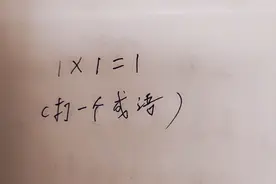 1×1=1
(打一个成语)